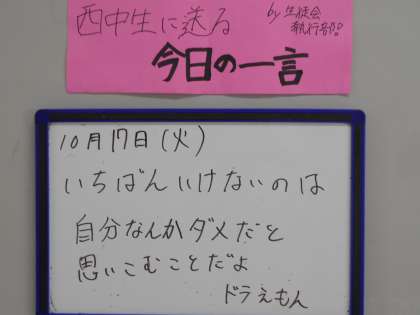 西中生に送る
by 生徒会
執行部!!
今日の一言
10月17日(火)
いちばんいけないのは
自分なんかダメだと
思いこむことだよ
ドラえもん